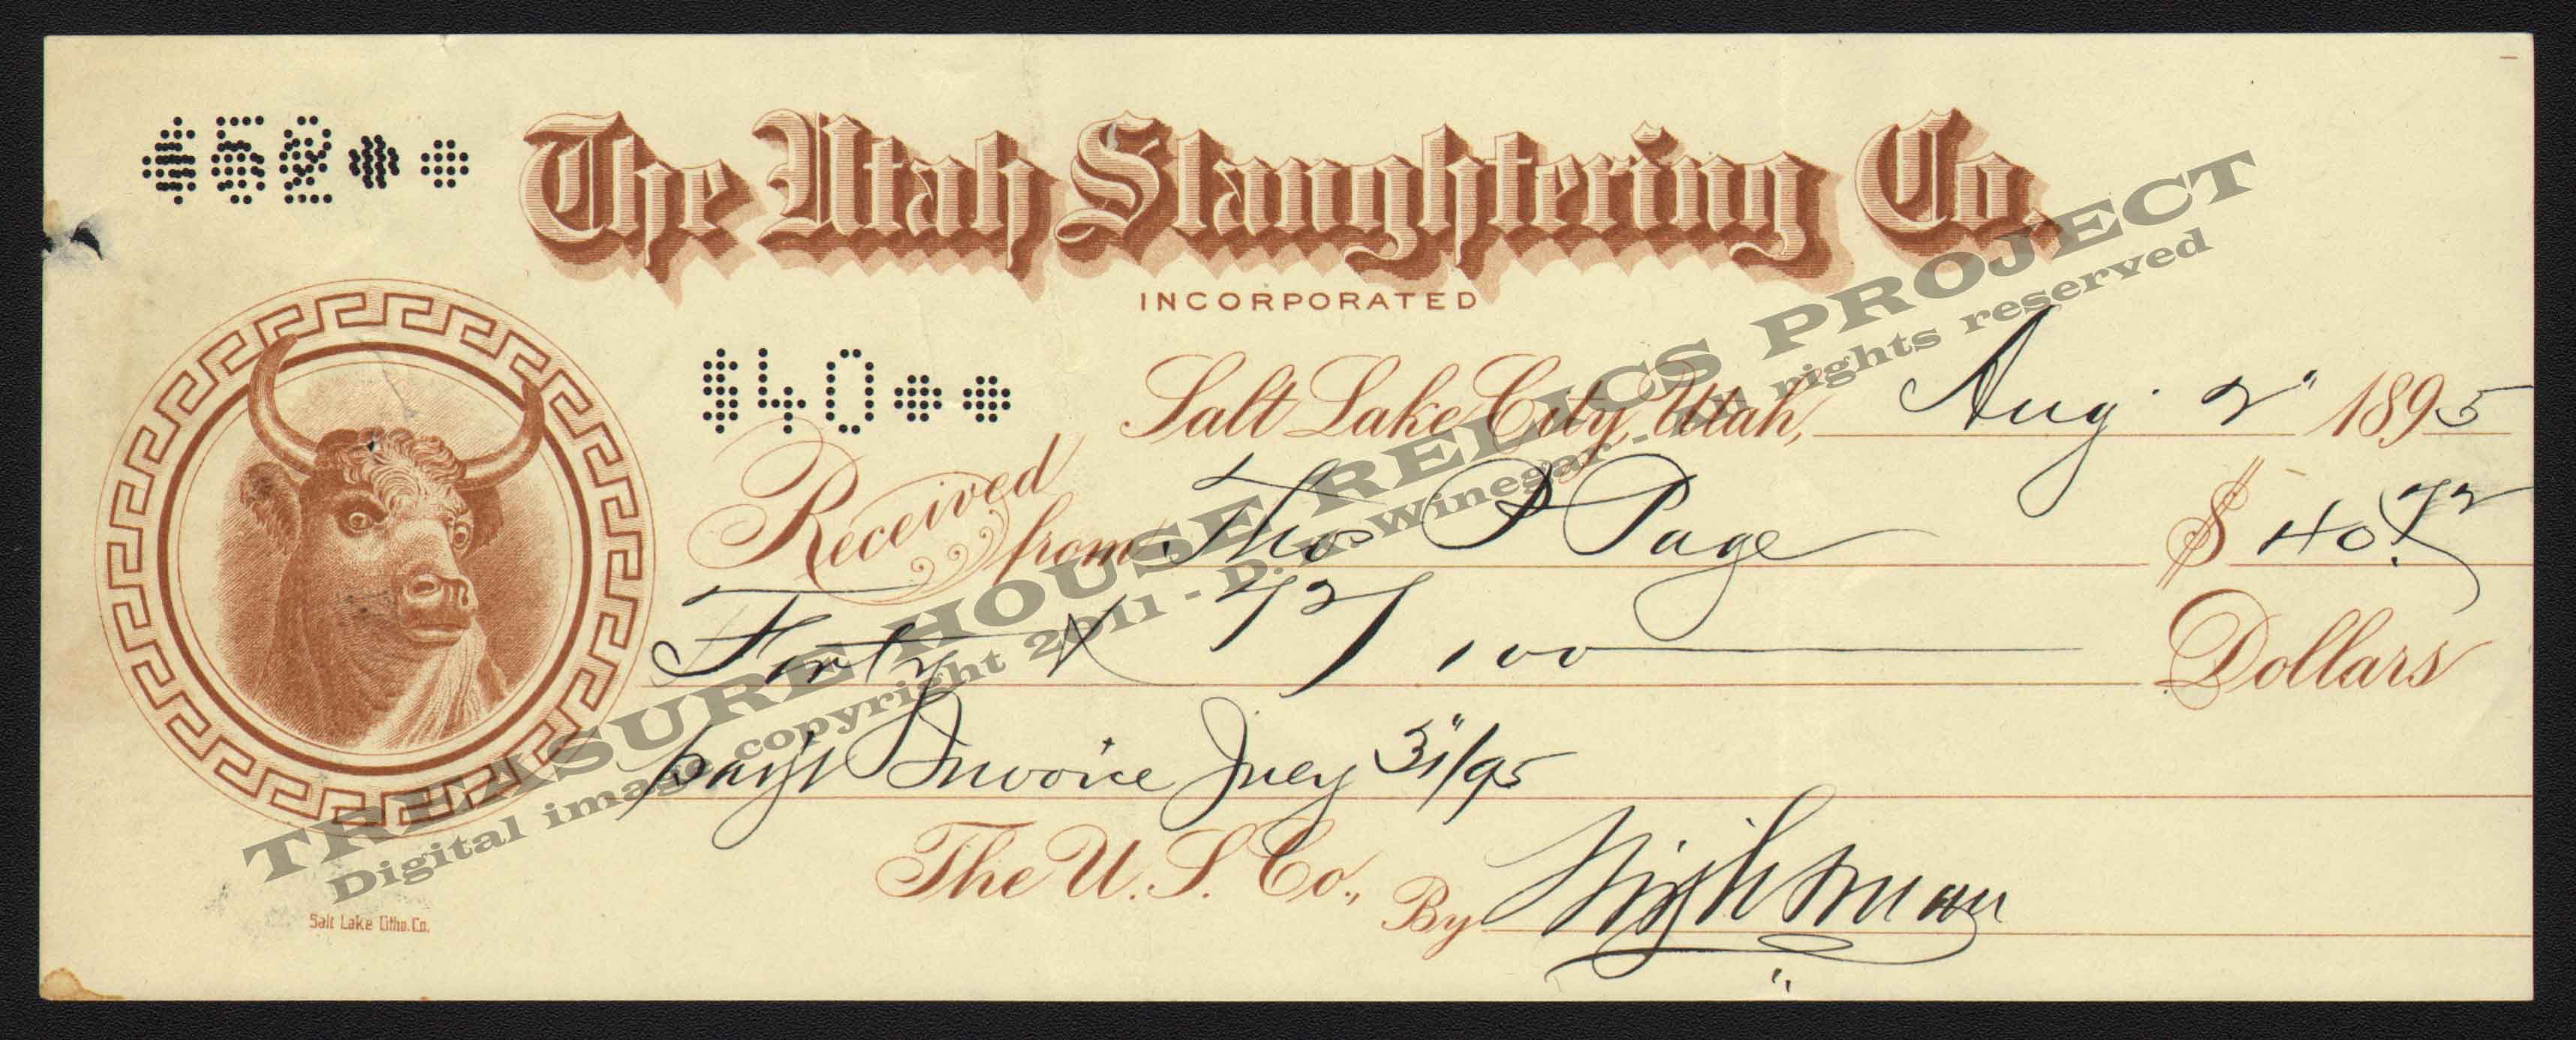 The Utah Slaughtering Co.
INCORPORATED
$40**
Salt Lake City, Utah, Aug 2" 1895
Received from Thos P Page $40.72
Forty & 72/100 Dollars
Invoice July 31"/95
The U. S. Co., By
Salt Lake Litho. Co.
TREASURE HOUSE RELICS PROJECT
Digital image copyright 2011 - D. K. Winegar - All rights reserved